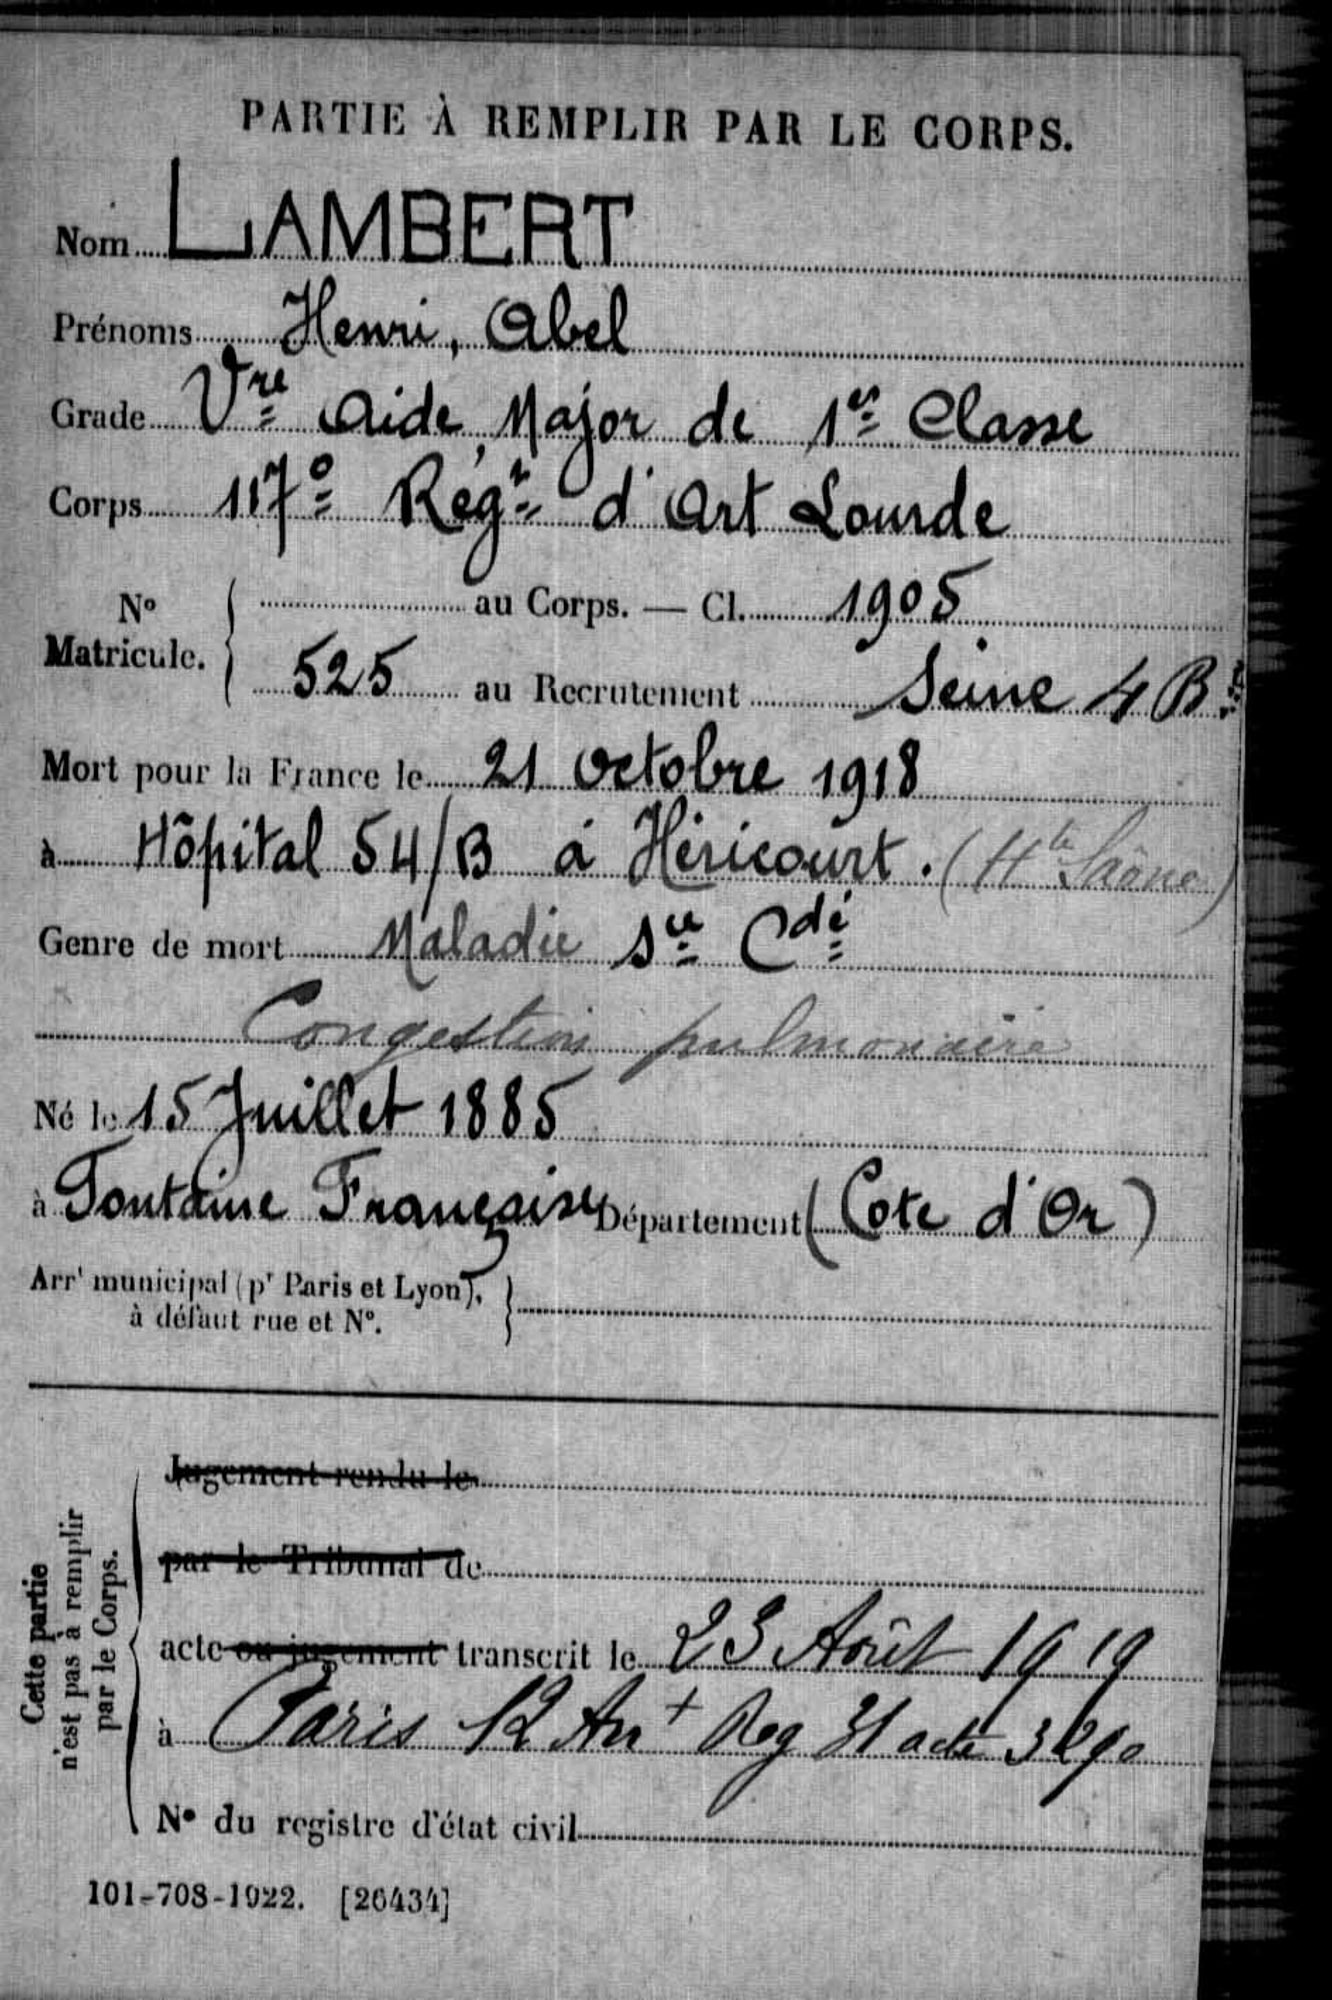 PARTIE À REMPLIR PAR LE CORPS.
Nom LAMBERT
Prénoms Henri, Abel
Grade Vre Aide Major de 1re Classe
Corps 117e Régt d'Art Lourde
No Matricule. au Corps. — Cl. 1905
525 au Recrutement Seine 4 B
Mort pour la France le 21 octobre 1918
à Hôpital 54/B à Héricourt. (Hte Saône)
Genre de mort Maladie Sce Cdé
Congestion pulmonaire
Né le 15 Juillet 1885
à Fontaine Française Département (Cote d'Or)
Arrt municipal (pr Paris et Lyon),
à défaut rue et No.
Cette partie
n'est pas à remplir
par le Corps.
Jugement rendu le
par le Tribunal de
acte ou jugement transcrit le 23 Août 1919
à Paris 12 Arrt Reg 31 acte 3290
No du registre d'état civil
101-708-1922. [26434]